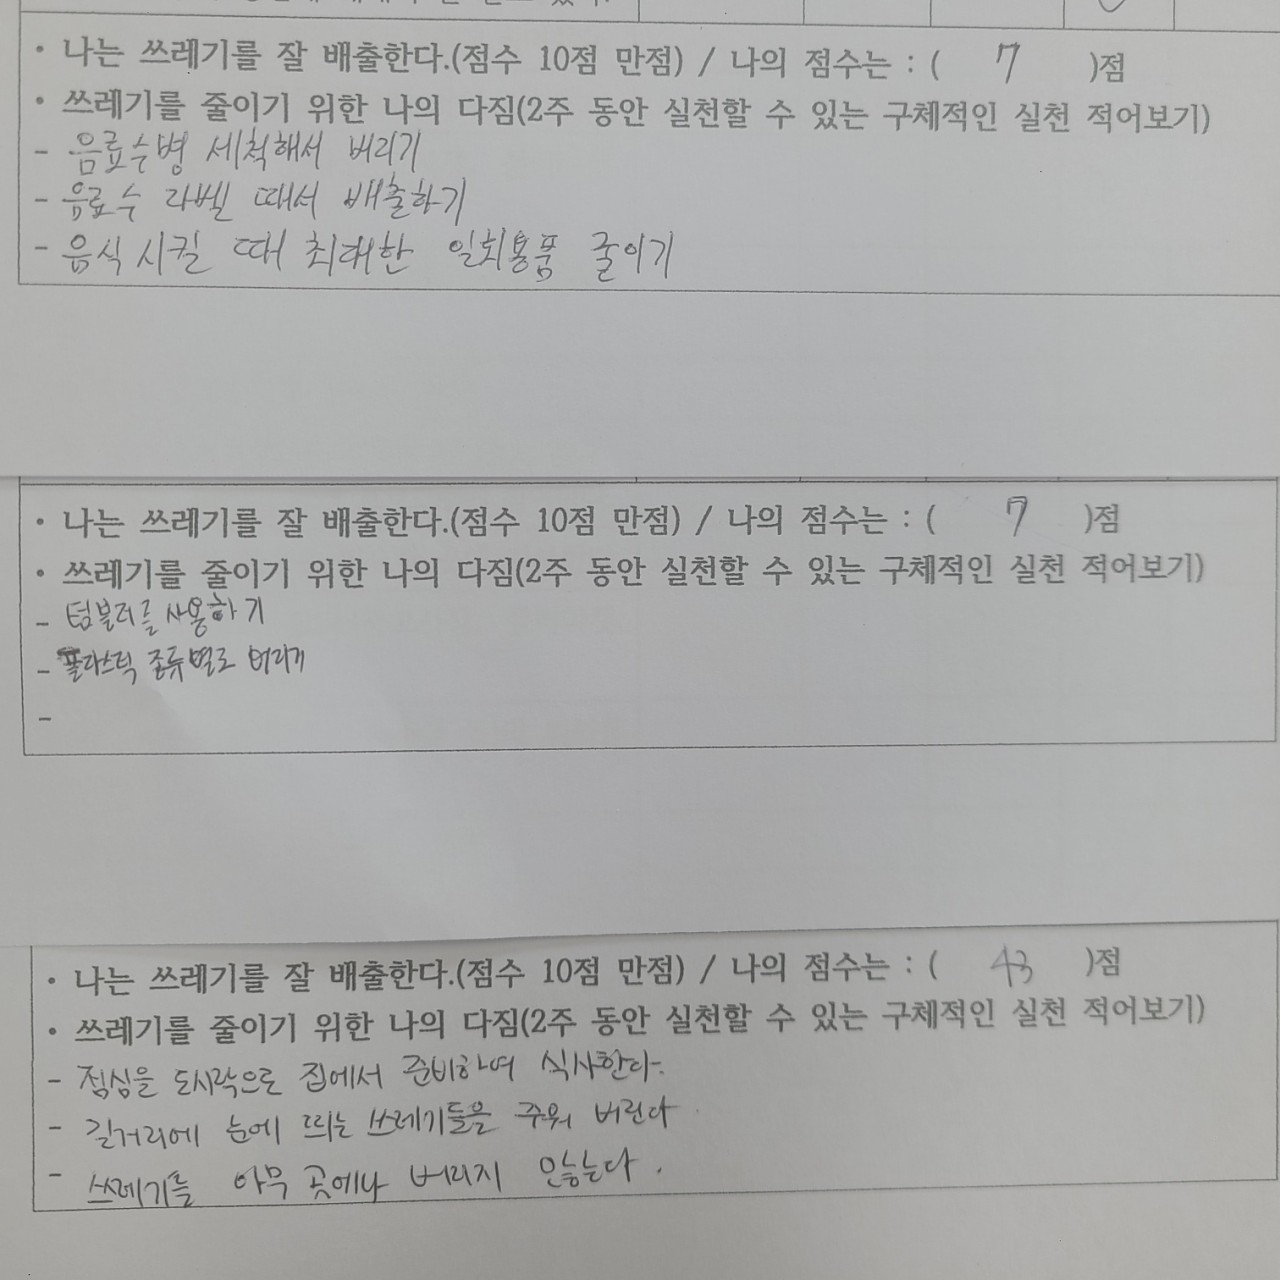 • 나는 쓰레기를 잘 배출한다.(점수 10점 만점) / 나의 점수는 : ( 7 )점
• 쓰레기를 줄이기 위한 나의 다짐(2주 동안 실천할 수 있는 구체적인 실천 적어보기)
- 음료수병 세척해서 버리기
- 음료수 라벨 때서 배출하기
- 음식 시킬 때 최대한 일회용품 줄이기
• 나는 쓰레기를 잘 배출한다.(점수 10점 만점) / 나의 점수는 : ( 7 )점
• 쓰레기를 줄이기 위한 나의 다짐(2주 동안 실천할 수 있는 구체적인 실천 적어보기)
- 텀블러를 사용하기
- 플라스틱 종류별로 버리기
-
• 나는 쓰레기를 잘 배출한다.(점수 10점 만점) / 나의 점수는 : ( 43 )점
• 쓰레기를 줄이기 위한 나의 다짐(2주 동안 실천할 수 있는 구체적인 실천 적어보기)
- 점심을 도시락으로 집에서 준비하여 식사한다.
- 길거리에 눈에 띄는 쓰레기들을 주워 버린다.
- 쓰레기를 아무 곳에나 버리지 않는다.